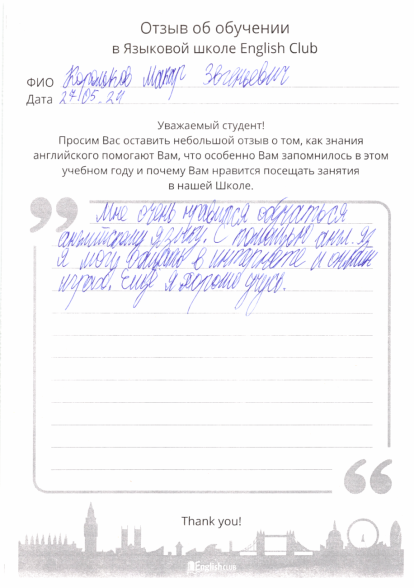 Отзыв об обучении
в Языковой школе English Club
ФИО Корольков Макар Евгеньевич
Дата 27.05.24
Уважаемый студент!
Просим Вас оставить небольшой отзыв о том, как знания
английского помогают Вам, что особенно Вам запомнилось в этом
учебном году и почему Вам нравится посещать занятия
в нашей Школе.
Мне очень нравится обучаться
английскому языку. С помощью англ. яз
я могу в интернете и онлайн
играх. Ещё я хорошо учусь.
Thank you!
Englishclub